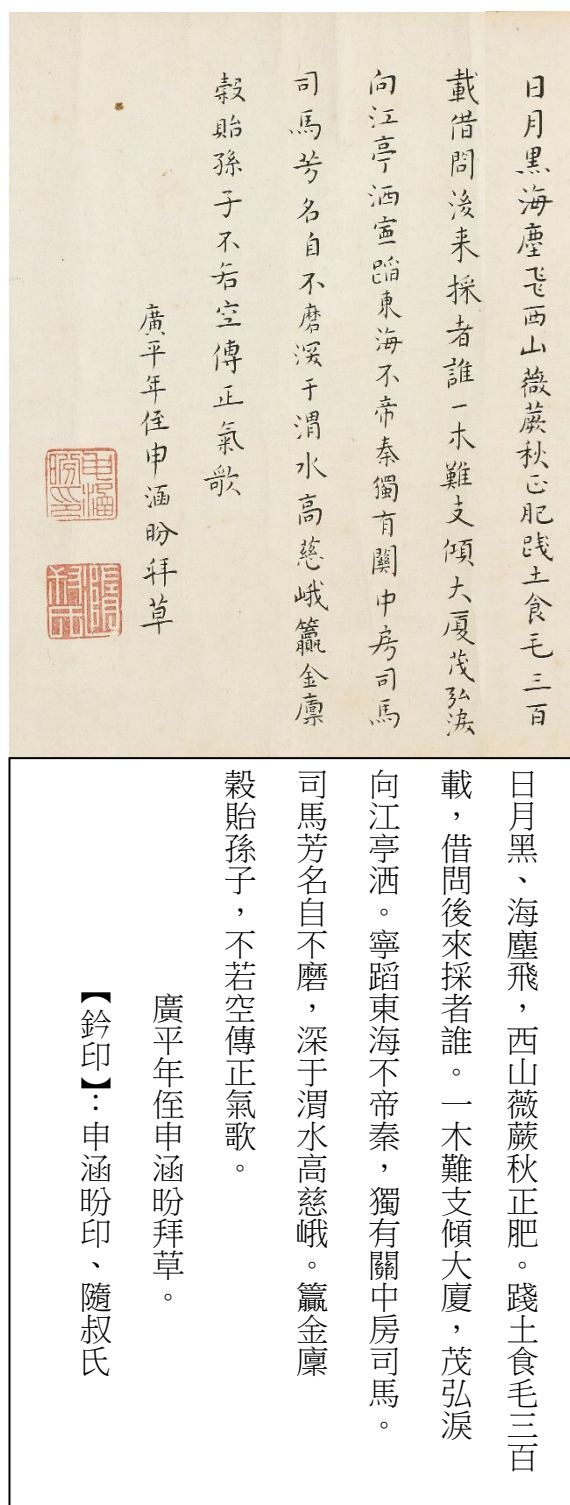 日月黑海塵飛西山薇蕨秋正肥踐土食毛三百
載借問後来採者誰一木難支傾大厦茂弘淚
向江亭洒寍蹈東海不帝秦獨有關中房司馬
司馬芳名自不磨深于渭水高慈峨籯金廩
穀貽孫子不若空傳正氣歌
廣平年侄申涵昐拜草
申涵昐印
隨叔氏
日月黑、海塵飛，西山薇蕨秋正肥。踐土食毛三百
載，借問後來採者誰。一木難支傾大廈，茂弘淚
向江亭洒。寧蹈東海不帝秦，獨有關中房司馬。
司馬芳名自不磨，深于渭水高慈峨。籯金廩
穀貽孫子，不若空傳正氣歌。
廣平年侄申涵昐拜草。
【鈐印】：申涵昐印、隨叔氏